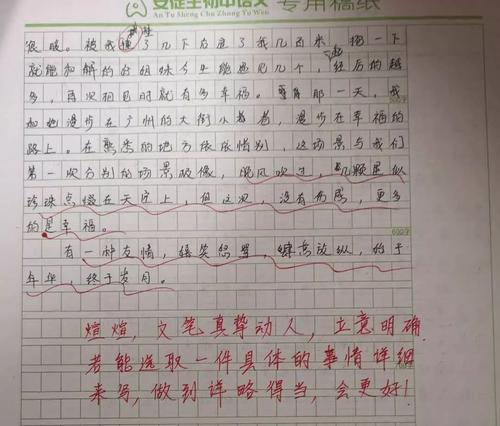 安徒生初中语文 专用稿纸
An Tu Sheng Chu Zhong Yu Wen
很暖。被我了几下友追了我几百米,一下
就能和解的台姐妹今生能遇见几个,经历的越
多,再次相见时就有多幸福。那一天,我
和她漫步在广州的大街小巷,漫步在幸福的
路上。在熟悉的地方依依惜别,这场景与我们
第一次分别的场景极像,晚风吹过,几颗星似
珍珠点缀在天空上,但这次,没有伤感,更多
的是幸福。
有一种友情,嬉笑怒骂,肆意放纵,始于
年华,终于岁月。
煊煊,文笔真挚动人,立意明确
若能选取一件具体的事情详细
来写,做到详略得当,会更好!